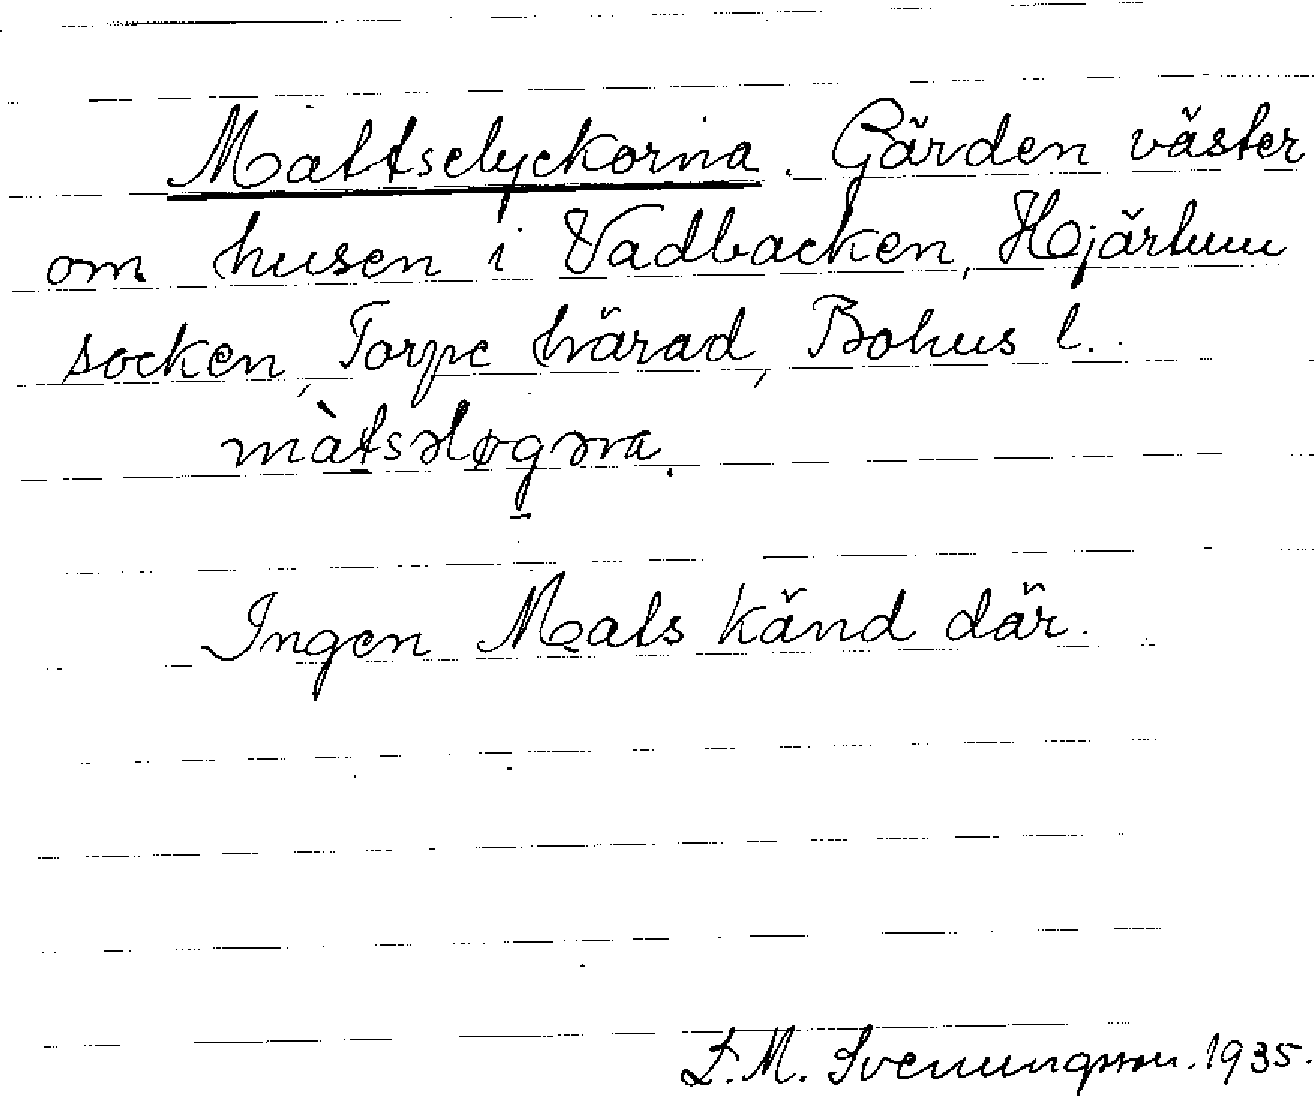 Mattselyckorna. Gärden väster
om husen i Vadbacken, Hjärtum
socken, Torpe härad, Bohus l.
màtsəløgəna.
Ingen Mats känd där.
L.M. Svenungsson. 1935.